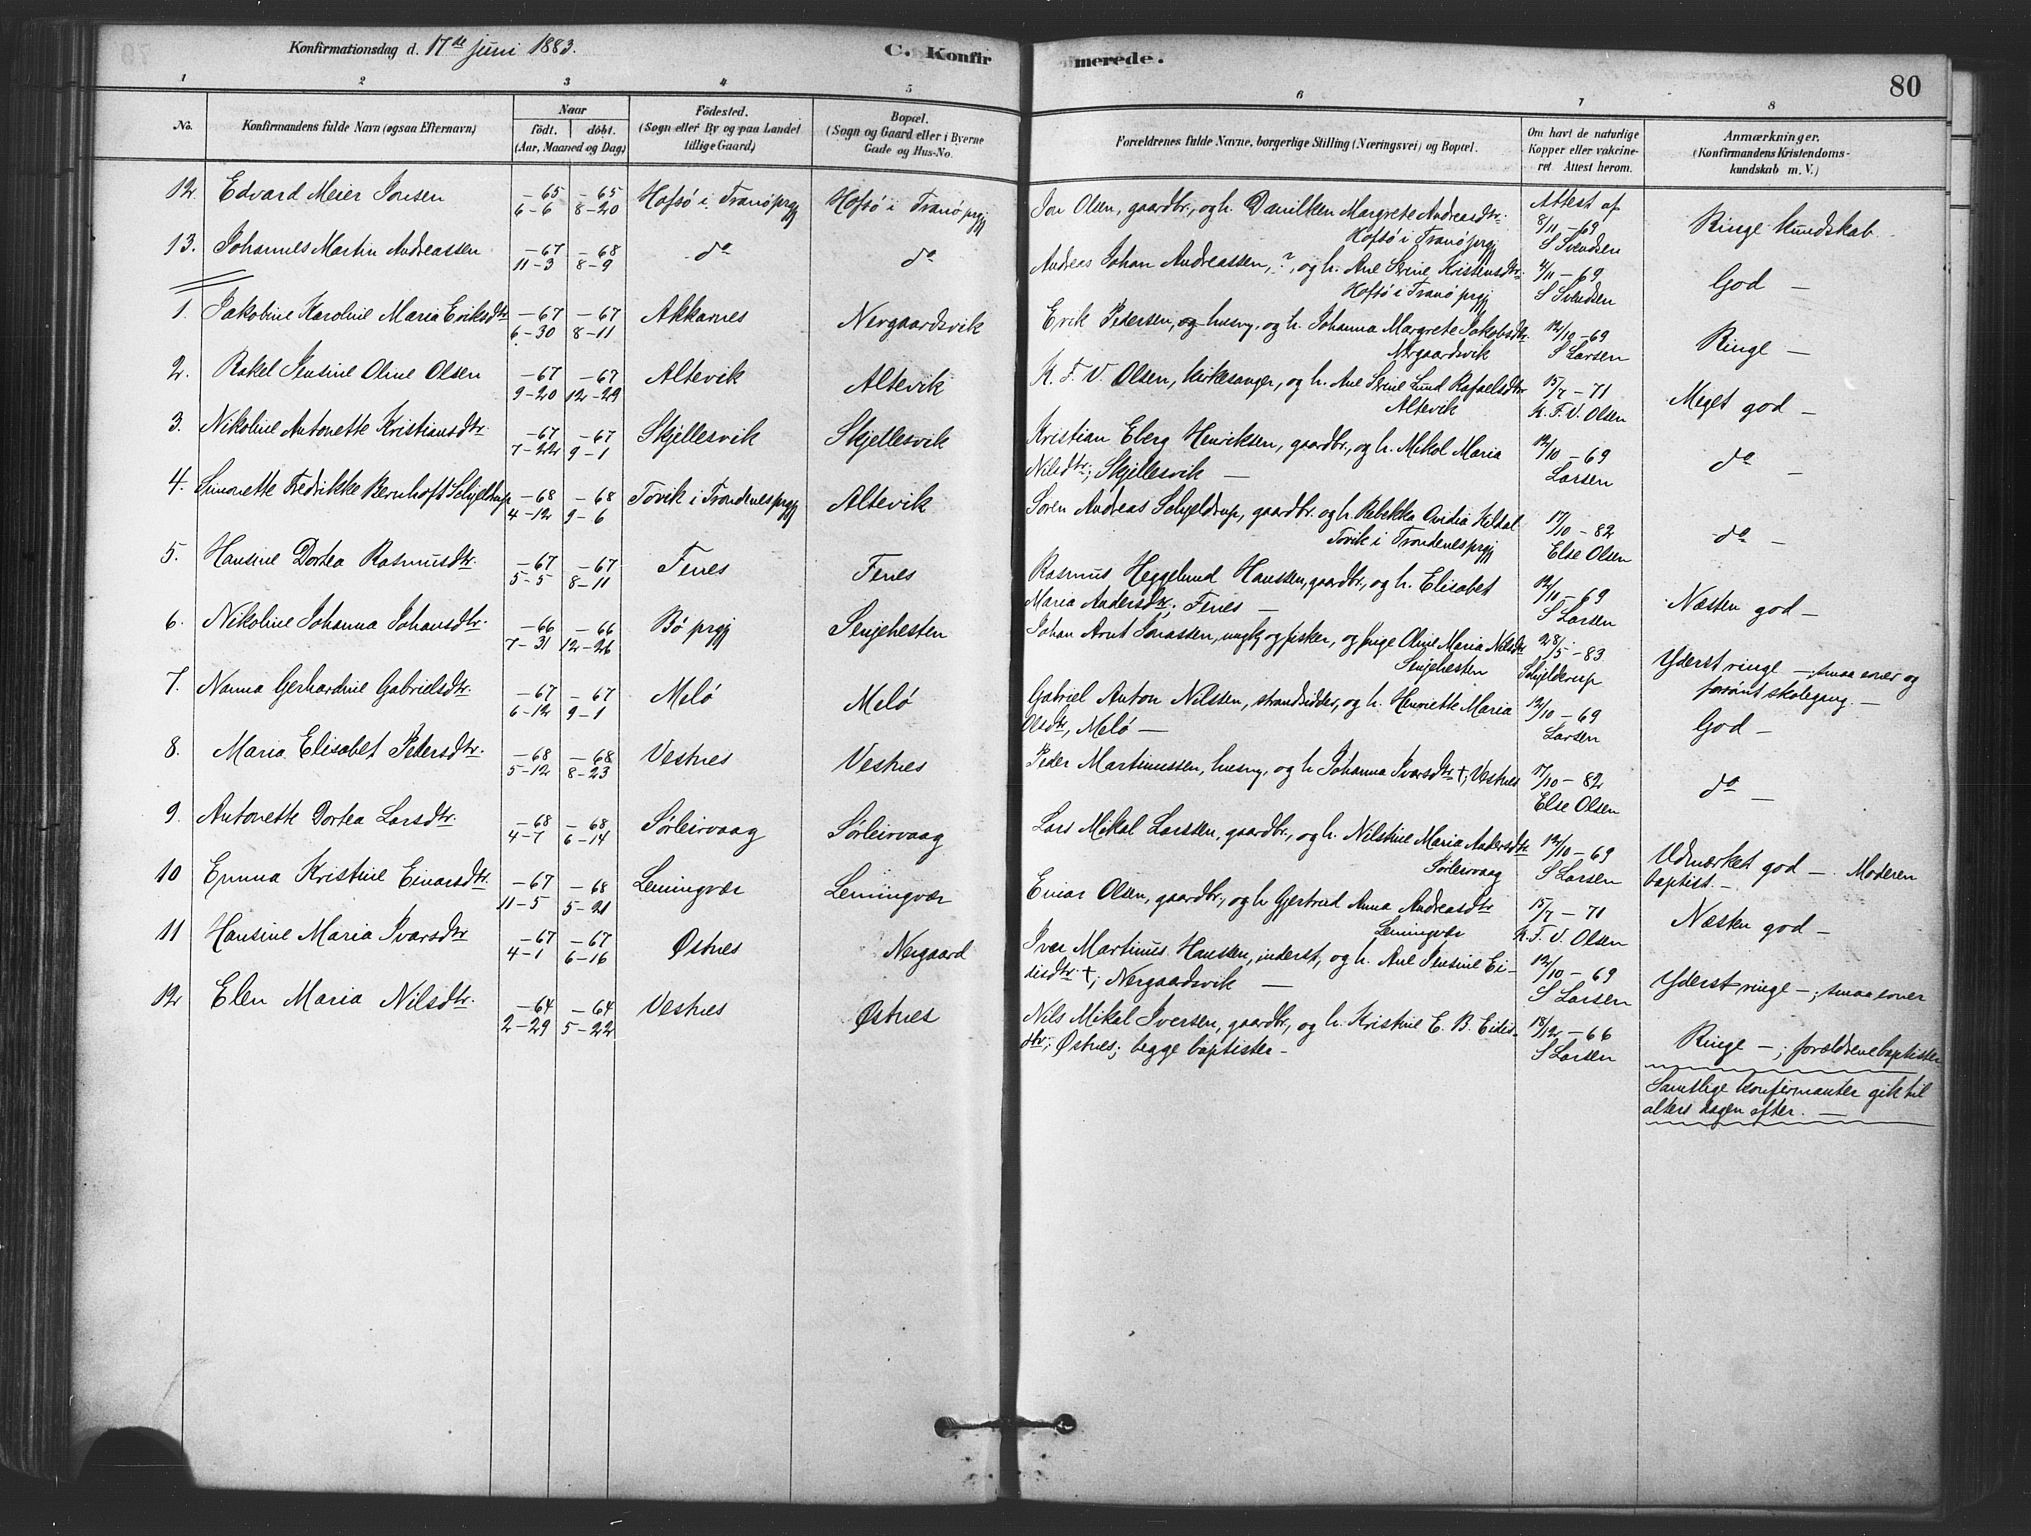 Konfirmationsdag d. 17de juni 1883.
C. Konfirmerede.
80
1 2 3 4 5 6 7 8
No.
Konfirmandens fulde Navn (ogsaa Efternavn)
Naar
födt. döbt.
(Aar, Maaned og Dag)
Födested.
(Sogn eller By og paa Landet
tillige Gaard)
Bopæl.
(Sogn og Gaard eller i Byerne
Gade og Hus-No.
Forældrenes fulde Navne, borgerlige Stilling (Næringsvei) og Bopæl.
Om havt de naturlige
Kopper eller vakcine-
ret Attest herom.
Anmærkninger.
(Konfirmandens Kristendoms-
kundskab m. V.)
12. Edvard Meier Jonsen –65 6–6 –65 8–20 Hofsö i Tranö prgj Hofsö i Tranö prgj
Jon Olsen, gaardbr., og h. Danilken Margrete Andreasdtr.
Hofsö i Tranö prgj
Attest af 8/11–69 S Svendsen
Ringe kundskab
13. Johannes Martin Andreassen –67 11–3 –68 8–9 do do
Andreas Johan Andreassen, ?, og h. Ane Serine Kristensdtr.
Hofsö i Tranö prgj
4/11–69 S Svendsen
God –
1. Jakobine Karoline Maria Eriksdtr –67 6–30 –67 8–11 Akkarnes Nergaardsvik
Erik Pedersen, og husm, og h. Johanna Margrete Jakobsdtr.
Nergaardsvik
12/10–69 S Larsen
Ringe –
2. Rakel Jensine Oline Olsen –67 9–20 –67 12–29 Altevik Altevik
K. F. V. Olsen, kirkesanger, og h. Ane Serine Lund Rafaelsdtr
Altevik
15/7–71 K. F. V. Olsen
Meget god –
3. Nikoline Antonette Kristiansdtr. –67 7–22 –67 9–1 Skjellesvik Skjellesvik
Kristian Eberg Henriksen, gaardbr., og h. Mikol Maria
Nilsdtr.; Skjellesvik –
12/10–69 Larsen
do –
4. Simonette Fredrikke Bernhoft Schjeldrup –68 4–12 –68 9–6 Tovik i Trondenes prgj Altevik
Sören Andreas Schjeldrup, gaardbr. og h. Rebekka Ovidia Kildal
Tovik i Trondenes prgj
17/10–82 Else Olsen
do –
5. Hansine Dortea Rasmusdtr. –67 5–5 –67 8–11 Fenes Fenes
Rasmus Heggelund Hanssen, gaardbr., og h. Elisabet
Maria Andersdtr.; Fenes –
12/11–69 S Larsen
Næsten god –
6. Nikoline Johanna Johansdtr. –66 7–31 –66 12–26 Bö prgj Senjehesten
Johan Arnt Jonassen, ungk og fisker, og pige Oline Maria Nilsdtr
Senjehesten
28/5–83 Schjelderup
Yderst ringe –; smaa evner og
forsömt skolegang. –
7. Nanna Gerhardine Gabrielsdtr. –67 6–12 –67 9–1 Melö Melö
Gabriel Anton Nilssen, strandsidder, og h. Henriette Maria
Olsdtr, Melö –
12/10–69 Larsen
God –
8. Maria Elisabet Pedersdtr. –68 5–12 –68 8–23 Vestnes Vestnes
Peder Martinussen, husm, og h Johanna Ivarsdtr †, Vestnes
17/10–82 Else Olsen
do –
9. Antonette Dortea Larsdtr. –68 4–7 –68 6–14 Sörleirvaag Sörleirvaag
Lars Mikal Larssen, gaardbr., og h. Nilstine Maria Andersdtr
Sörleirvaag
12/10–69 S Larsen
Udmærket god – Moderen
baptist. –
10 Emma Kristine Einarsdtr –67 11–5 –68 5–21 Lemingvær Lemingvær
Einar Olsen, gaardbr., og h Gjertrud Anna Andreasdtr
Lemingvær
15/7–71 K. F. V. Olsen
Næsten god –
11 Hansine Maria Ivarsdtr –67 4–1 –67 6–16 Østnes Nergaard
Ivar Martinus Hanssen, inderst, og h. Ane Jensine Ei-
disdtr. †; Nergaardsvik –
12/10–69 S Larsen
Yderst ringe –; smaa evner
12 Elen Maria Nilsdtr. –64 2–29 –64 5–22 Vestnes Østnes
Nils Mikal Iversen, gaardbr., og h. Kristine E. B. Eidis-
dtr.; Østnes; begge baptister –
18/12–66 S Larsen
Ringe –; forældrene baptister
Samtlige konfirmanter gik til
alters dagen efter. –